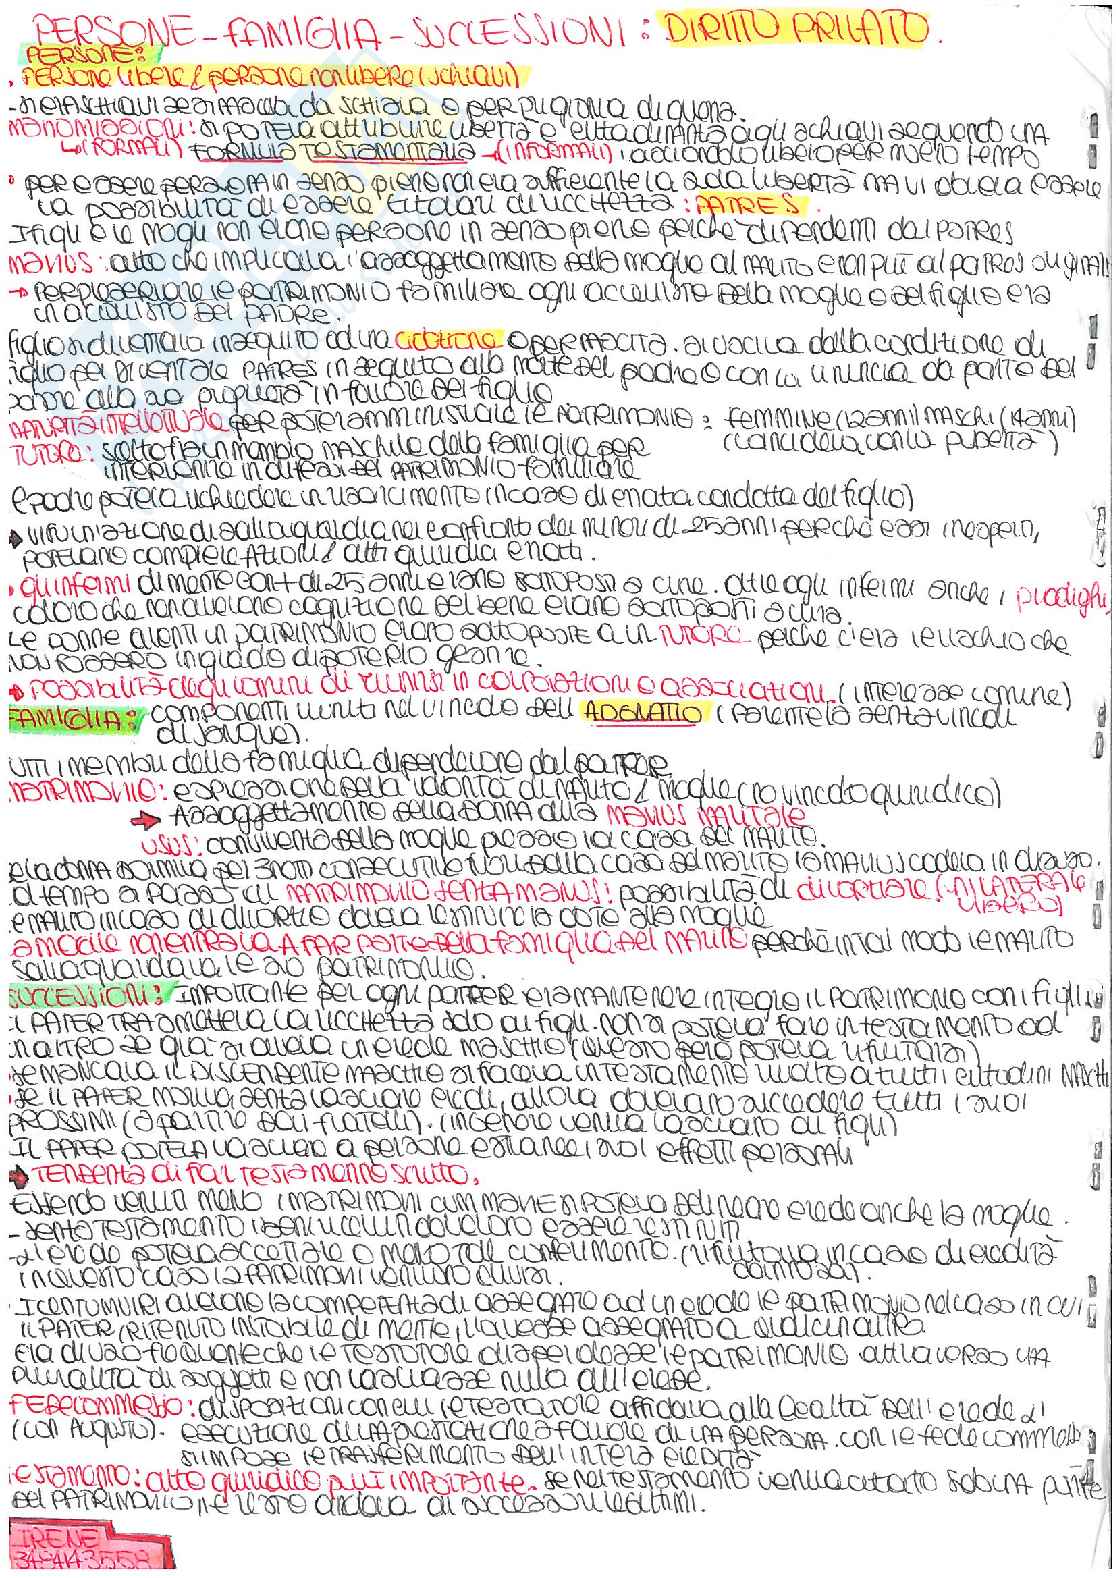 PERSONE - FAMIGLIA - SUCCESSIONI: DIRITTO PRIVATO.
PERSONE:
. PERSONE libere e persone non libere (schiavi)
MANOMISSIONI: si poteva attribuire libertà e cittadinanza agli schiavi seguendo una
↳(FORMALI) FORMULA TESTAMENTARIA →(INFORMALI): lo schiavo libero per molto tempo
per essere persona in senso pieno non era sufficiente la sola libertà ma vi doveva essere
la possibilità di essere titolari di ricchezza: PATRES.
I figli e le mogli non erano persone in senso pieno perché dipendenti dal PATRES
MANUS: atto che implicava l'assoggettamento della moglie al MARITO e non più al PATRES originale
→ per preservare le PATRIMONIO familiare ogni acquisto della moglie o del figlio era
un acquisto del PADRE.
figlio si diventava in seguito ad una adozione o per nascita. si usciva dalla condizione di
figlio per diventare PATRES in seguito alla morte del padre o con la rinuncia da parte del
padre alla sua proprietà in favore del figlio
per poter amministrare le PATRIMONIO: femmine (12 anni) maschi (14 anni)
(coincideva con la pubertà)
TUTORE: scelto fra un membro maschile della famiglia per
intervenire in difesa del PATRIMONIO familiare
(e poteva richiedere un risarcimento in caso di errata condotta del figlio)
di salvaguardia nei confronti dei minori di 25 anni perché essi inesperti,
potevano compiere AZIONI e atti giuridici errati.
. gli infermi di mente con + di 25 anni erano sottoposti a cure. oltre agli infermi anche i prodighi,
coloro che non avevano cognizione del bene erano sottoposti a cura.
Le donne aventi un PATRIMONIO erano sottoposte a un TUTORE perché c'era il rischio che
non fossero in grado di poterlo gestire.
possibilità degli uomini di riunirsi in corporazioni o associazioni. (interesse comune)
FAMIGLIA: componenti uniti nel vincolo dell' ADGNATIO (parentela senza vincoli
di sangue).
tutti i membri della famiglia dipendevano dal PATER
MATRIMONIO: espressione della volontà di MARITO e moglie (no vincolo giuridico)
→ Assoggettamento della DONNA alla MANUS MARITALE
USUS: convivenza della moglie presso la casa del MARITO.
se la donna dormiva per 3 notti consecutive fuori dalla casa del marito la MANUS cadeva in disuso.
Col tempo si passò al MATRIMONIO SENZA MANUS: possibilità di divorziare (UNILATERALE
LIBERO)
e MARITO in caso di divorzio doveva restituire la dote alla moglie
la moglie non entrava A FAR PARTE della famiglia del MARITO perché in tal modo le MARITO
salvaguardava le suo PATRIMONIO.
SUCCESSIONI: IMPORTANTE per ogni PATER era MANTENERE INTEGRO IL PATRIMONIO con i figli.
IL PATER TRASMETTEVA LA RICCHEZZA solo ai figli. non si poteva fare un testamento ad
un altro se già si aveva un erede maschio (questo però poteva rifiutarsi)
se mancava il DISCENDENTE MASCHIO si faceva un TESTAMENTO rivolto a tutti i cittadini MASCHI
. SE IL PATER MORIVA senza lasciare eredi, allora dovevano succedere tutti i suoi
PROSSIMI (a partire dai fratelli).
IL PATER POTEVA lasciare a persone estranee i suoi effetti personali
→ TENDENZA di far TESTAMENTO SCRITTO.
Essendo venuti meno i MATRIMONI CUM MANU si poteva definire erede anche la moglie.
- senza TESTAMENTO i beni dovevano essere restituiti
- L'erede poteva accettare o meno tale conferimento. (rifiutava in caso di eredità
dannosa).
in questo caso i PATRIMONI venivano divisi.
I CENTUMVIRI avevano la COMPETENZA di assegnare ad un erede le PATRIMONIO nel caso in cui
IL PATER, RITENUTO INSTABILE di mente, l'avesse assegnato a qualcun altro
Era di uso frequente che le TESTATORE disperdesse le PATRIMONIO attraverso una
pluralità di soggetti e non lasciasse nulla all'erede.
FEDECOMMESSO: disposizioni con cui le testatore affidava alla lealtà dell'erede l'
(con Augusto). esecuzione di una prestazione a favore di una PERSONA. con le fedecommesso
si impose le TRASFERIMENTO dell'intera eredità
TESTAMENTO: atto giuridico più IMPORTANTE. se nel testamento veniva citato solo una parte
del PATRIMONIO, ne resto andava ai successori legittimi.
IRENE